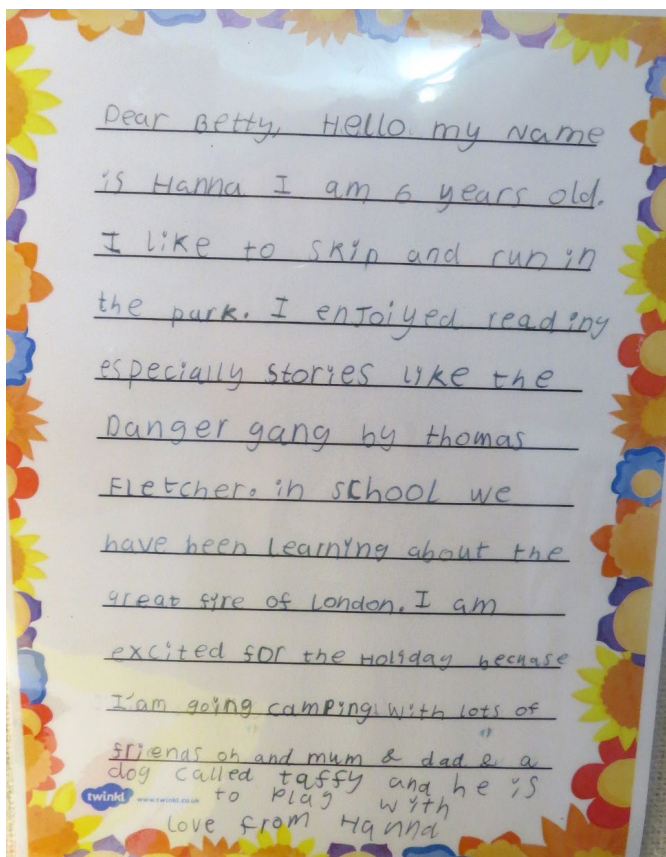 Dear Betty, Hello my Name
is Hanna I am 6 years old.
I like to skip and run in
the park. I enJoiyed reading
especially stories like the
Danger gang by thomas
Fletcher. in school we
have been learning about the
great fire of London. I am
excited for the Holiday becuase
I'am going camping with lots of
friends oh and mum & dad & a
dog called taffy and he is
to play with
twinkl www.twinkl.co.uk
Love from Hanna